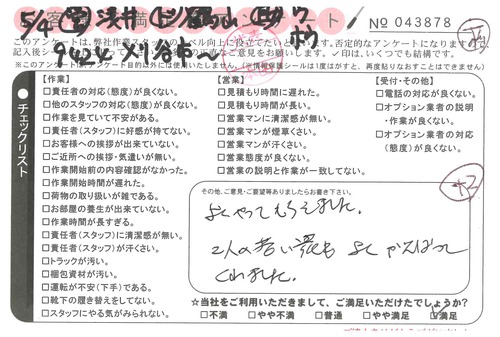 5/4
No 043878
このアンケートは、弊社作業スタッフのレベル向上に役立てたいと
否定的なアンケートになりますが
記入後シールで
お願いします。☑印は、いくつでも結構です。
※このアンケートはアンケート目的以外には使用いたしません。(※情報保護シールは1度はがすと、再度貼りなおすことはできません)
チェックリスト
【作業】
□責任者の対応(態度)が良くない。
□他のスタッフの対応(態度)が良くない。
□作業を見ていて不安がある。
□責任者(スタッフ)に好感が持てない。
□お客様への挨拶が出来ていない。
□ご近所への挨拶・気遣いが無い。
□作業開始前の内容確認がなかった。
□作業開始時間が遅れた。
□荷物の取り扱いが雑である。
□お部屋の養生が出来ていない。
□作業時間が長すぎる。
□責任者(スタッフ)に清潔感が無い。
□責任者(スタッフ)が汗くさい。
□トラックが汚い。
□梱包資材が汚い。
□運転が不安(下手)である。
□靴下の履き替えをしてない。
□スタッフにやる気がみられない。
【営業】
□見積もり時間に遅れた。
□見積もり時間が長い。
□営業マンに清潔感が無い。
□営業マンが煙草くさい。
□営業マンが汗くさい。
□営業態度が良くない。
□営業の説明と作業が一致してない。
【受付・その他】
□電話の対応が良くない。
□オプション業者の説明
・作業が良くない。
□オプション業者の対応
(態度)が良くない。
+2
その他、ご意見・ご要望等ありましたらお書き下さい。
よくやってもらえました。
2人の若い衆も よく がんばって
くれました。
☆当社をご利用いただきまして、ご満足いただけたでしょうか?
□不満 □やや不満 □普通 □やや満足 ☑満足